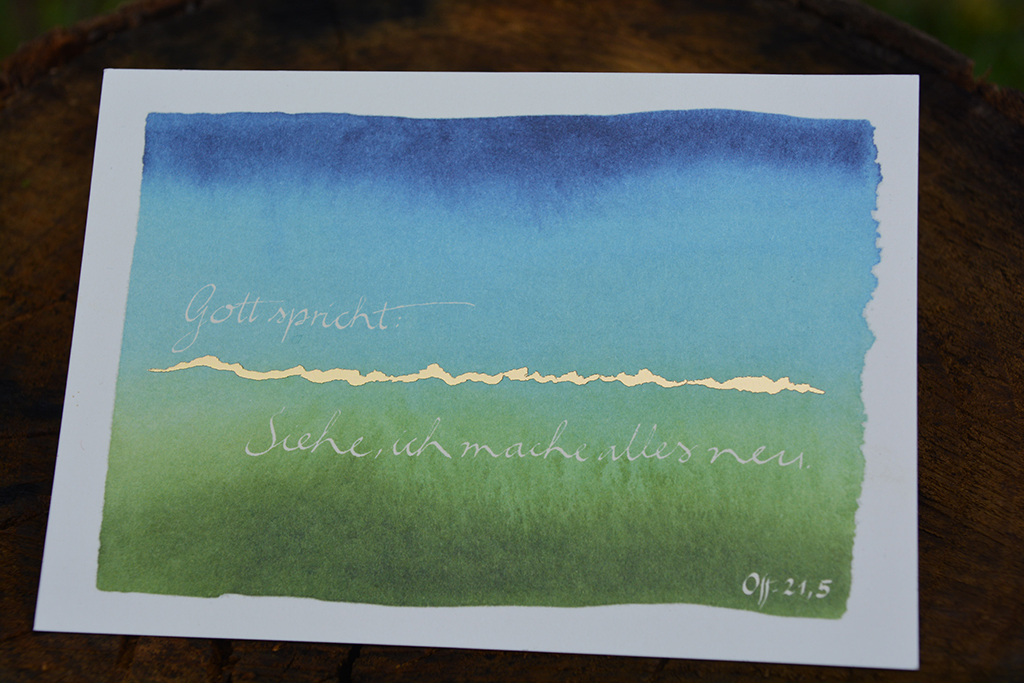 Gott spricht:
Siehe, ich mache alles neu.
Off. 21,5